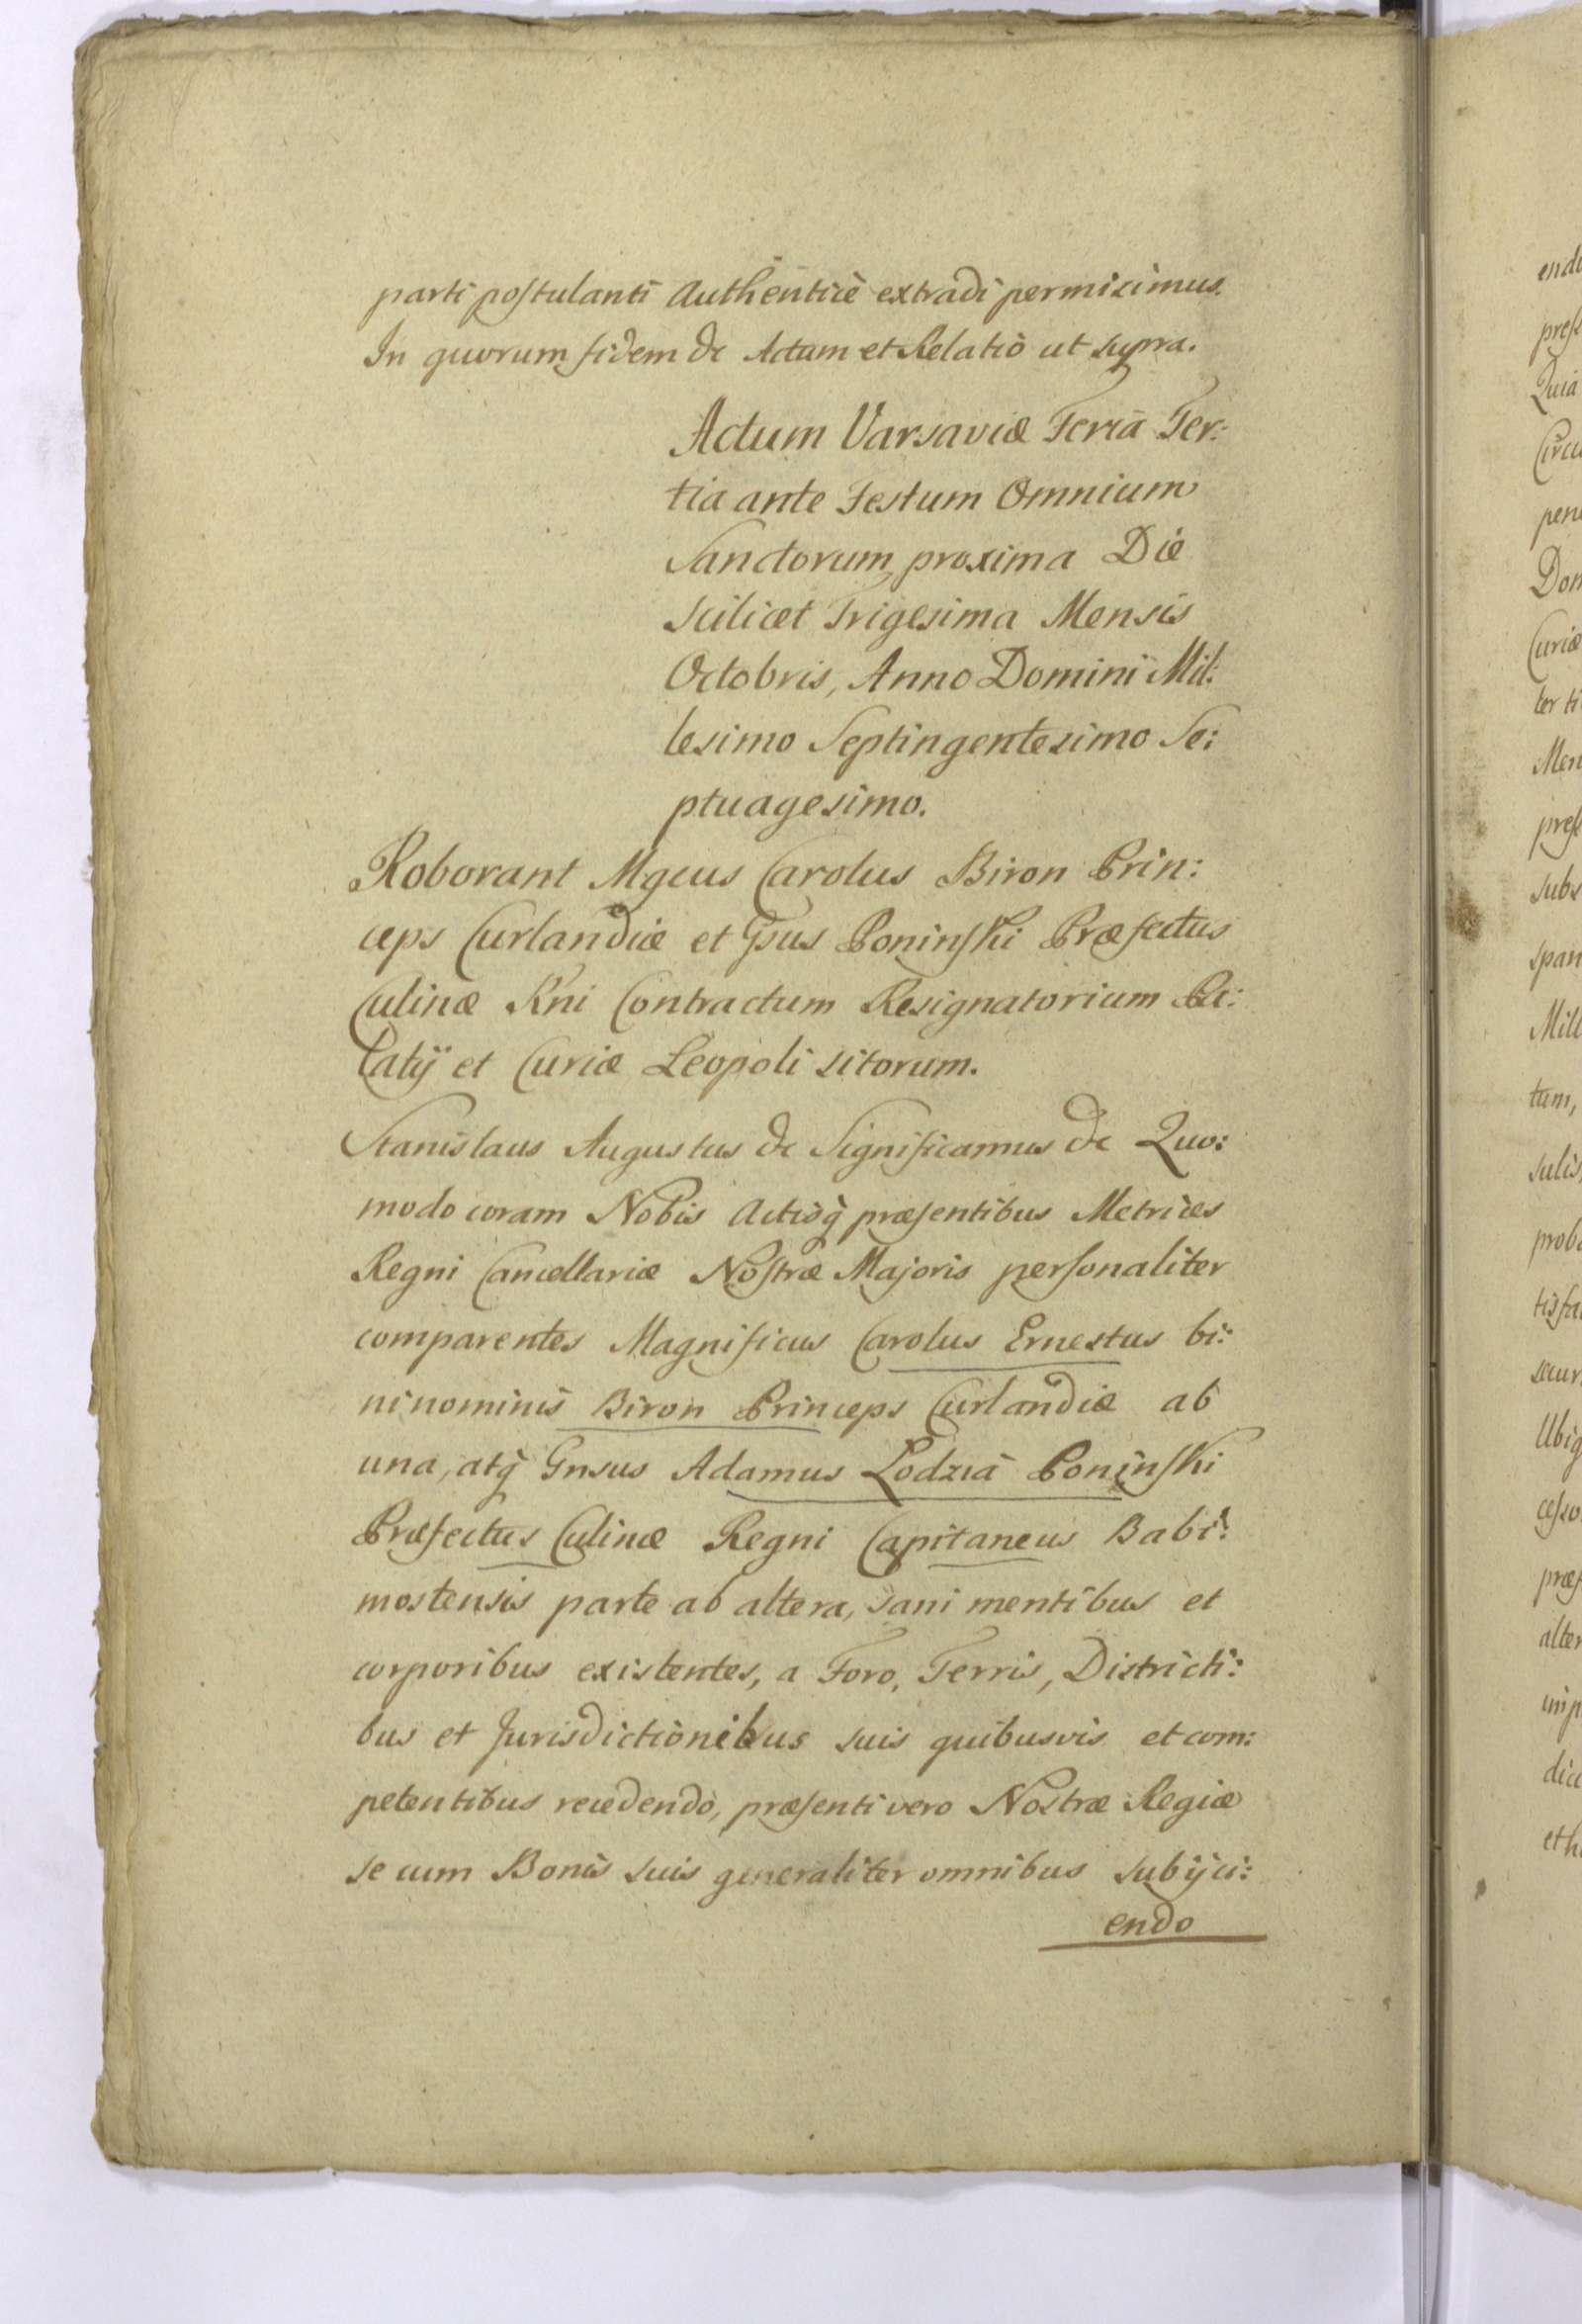 parti postulanti Authentice extradi permisimus.
In quorum fidem &c Actum et Relatio ut supra.
Actum Varsaviæ Feria Ter:
tia ante Festum Omnium
Sanctorum proxima Die
scilicet Trigesima Mensis
Octobris, Anno Domini Mil:
lesimo Septingentesimo Se:
ptuagesimo.
Roborant Mgcus Carolus Biron Prin:
ceps Curlandiæ et Gsus Poninski Præfectus
Culinæ Rni Contractum Resignatorium Pa:
latij et Curiæ Leopoli sitorum.
Stanislaus Augustus &c Significamus &c Quo:
modo coram Nobis Actisq præsentibus Metrices
Regni Cancellariæ Nostræ Majoris personaliter
comparentes Magnificus Carolus Ernestus bi:
ninominis Biron Princeps Curlandiæ ab
una, atq Gnsus Adamus Lodzia Poninski
Præfectus Culinæ Regni Capitaneus Babi:
mostensis parte ab altera, sani mentibus et
corporibus existentes, a Foro, Terris, Districti:
bus et Jurisdictionibus suis quibusvis et com:
petentibus recedendo, præsenti vero Nostræ Regiæ
se cum Bonis suis generaliter omnibus subijci:
endo